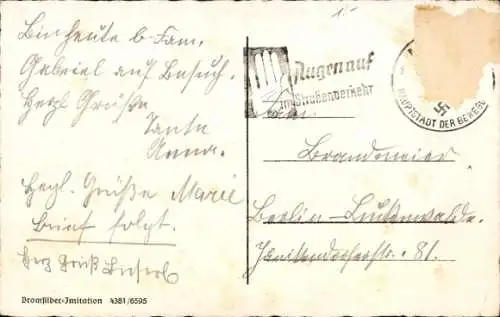 Bin heute b. Fam.
Gabriel auf Besuch.
Herzl Grüße
Tante
Anna.
Hezl. Grüße Marie
Brief folgt.
Herz Gruß
Bromsilber-Imitation 4381/6595
1.-
Augen auf
im Straßenverkehr
HAUPTSTADT DER BEWEGU
Fam.
Brandmeier
Berlin-Luckenwalde.
81.